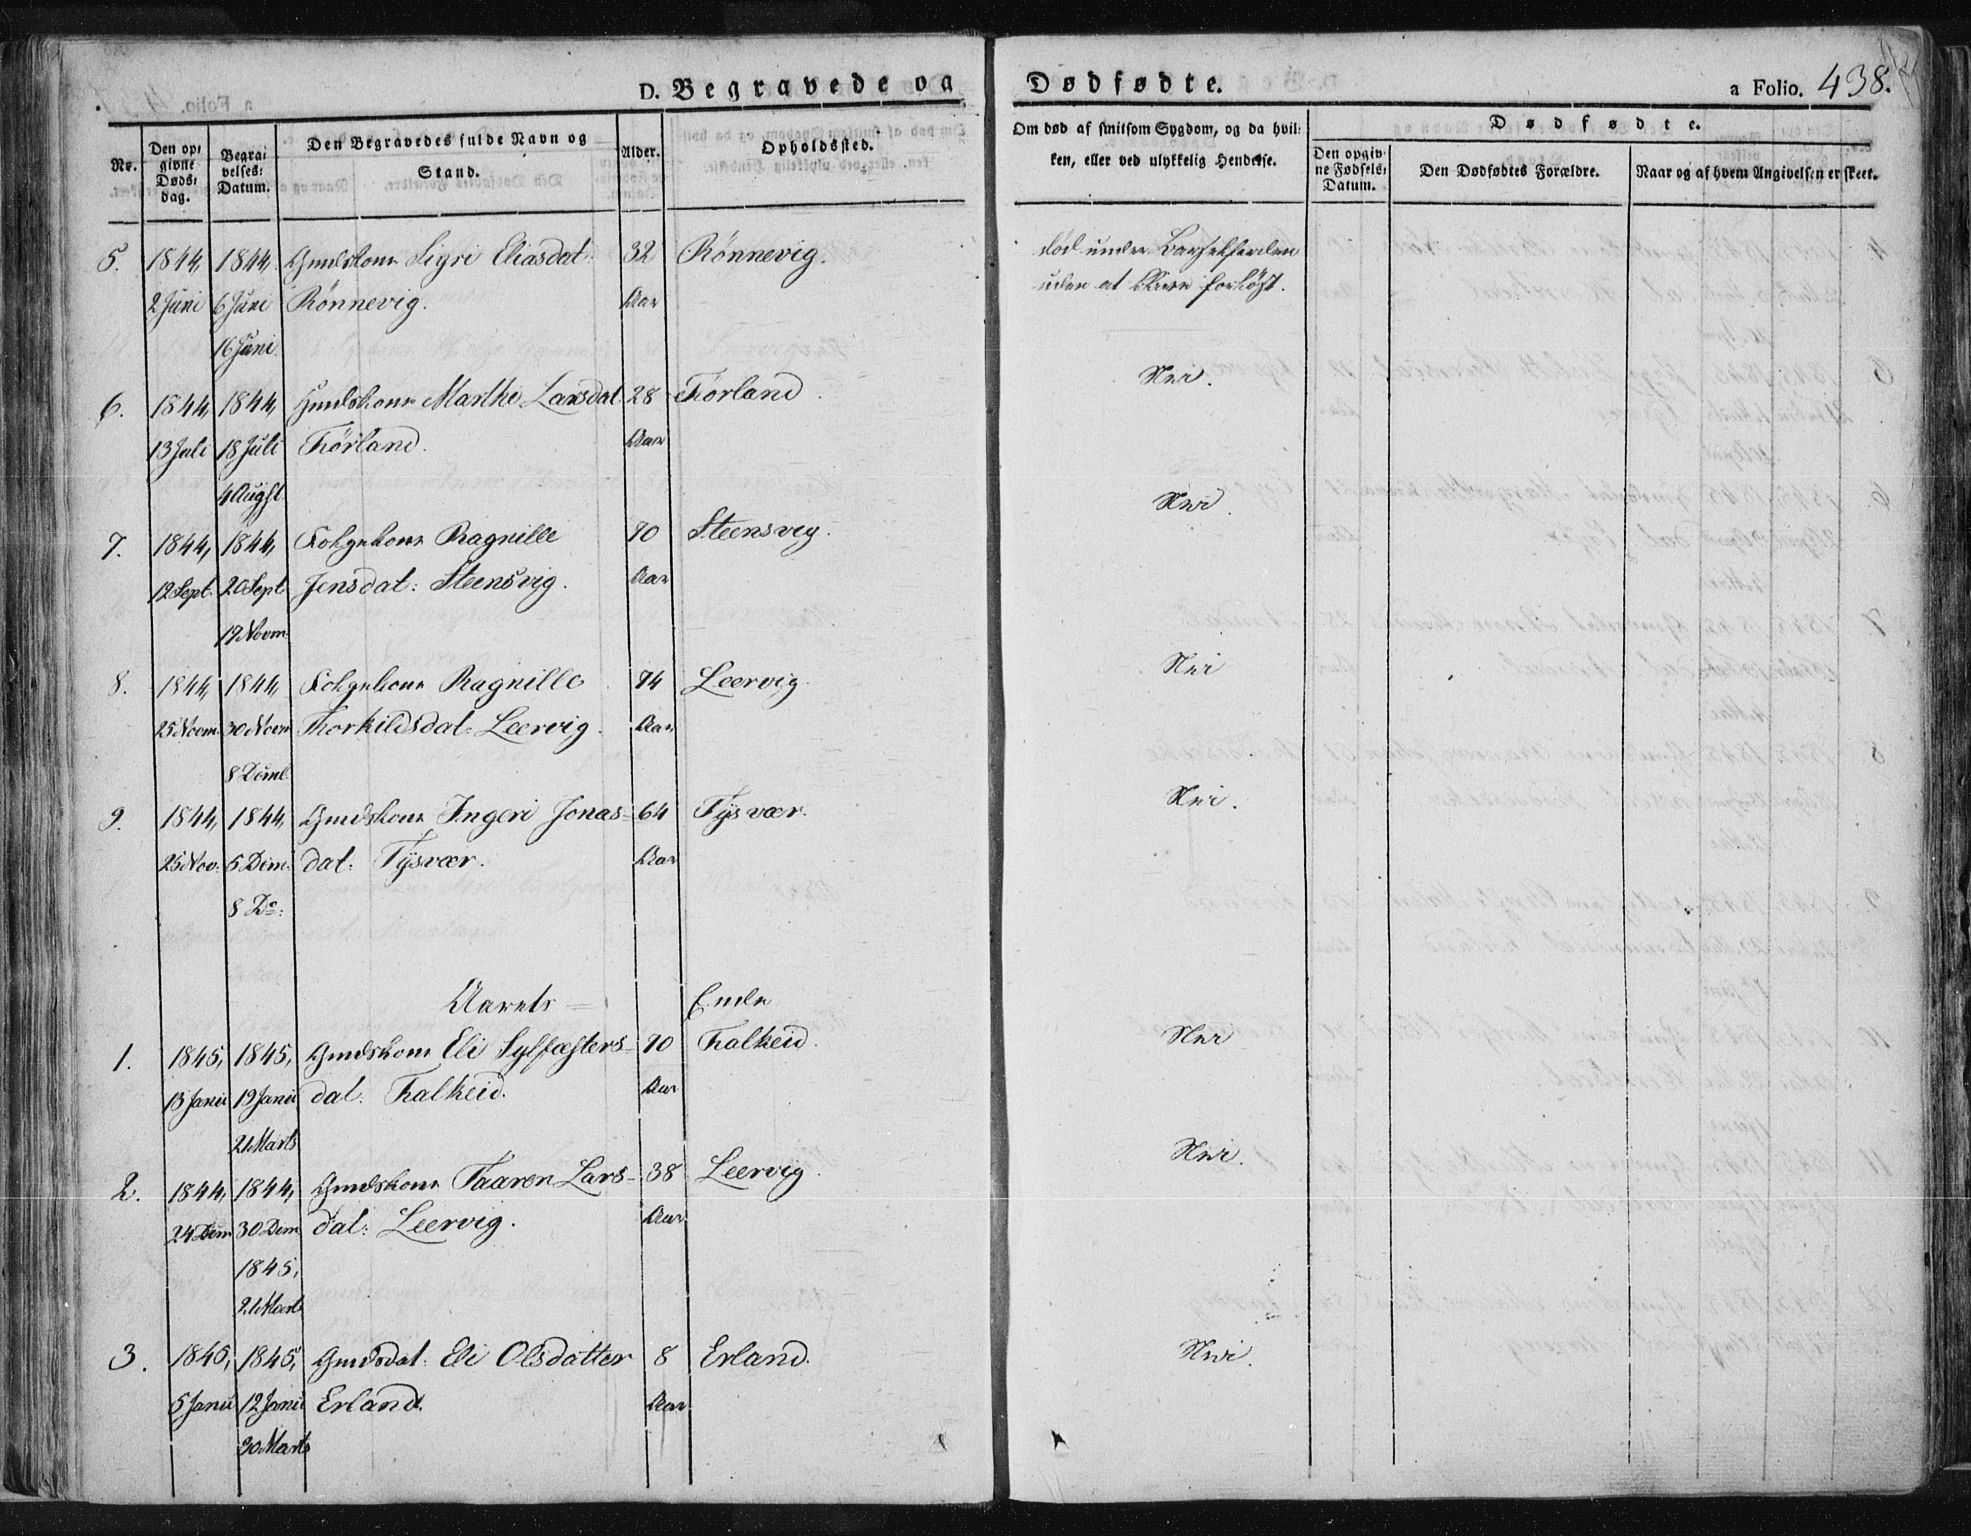 D. Begravede og Dødfødte.
a Folio. 438.
No.
Den opgivne Døds-dag.
Begravelses-Datum.
Den Begravedes fulde Navn og Stand.
Alder.
Opholdssted.
Om død af smitsom Sygdom, og da hvilken, eller ved ulykkelig Hendelse.
Dødfødte.
Den opgivne Fødsels-Datum.
Den Dødfødtes Forældre.
Naar og af hvem Angivelsen er skeet.
5. 1844, 1844, Gmdskone Sigri Eliasdat: 32 Rønnevig. død under Barselfærden
2 Juni 6 Juni Rønnevig. Aar uden at forløst.
16 Juni
6. 1844, 1844, Gmdskone Marthe Larsdat. 28 Førland Nei.
13 Juli 18 Juli Førland. Aar
4 Augst
7. 1844, 1844, Folgekone Ragnille 70 Steensvig. Nei.
12 Sept. 20 Sept Jensdat: Steensvig. Aar
17 Novm.
8. 1844, 1844, Folgekone Ragnille 74 Leervig. Nei
25 Novm. 30 Novm Thorkildsdat: Leervig. Aar
8 Deml.
9. 1844, 1844, Gmdskone Ingeri Jonas- 64 Tysvær. Nei.
25 Nov. 5 Dem. dat: Tysvær. Aar
8 Do:
Aarets Ende
1. 1845, 1845, Gmdskone Eli Sylfæsters- 70 Falkeid. Nei
13 Janu 19 Janu dat: Falkeid. Aar
21 Marts
2. 1844, 1844, Gmdskone Taaren Lars- 38 Leervig. Nei.
24 Dem 30 Dem dat: Leervig. Aar
1845,
21 Marts
3. 1845, 1845, Gmdsdat: Eli Olsdatter 8 Erland. Nei.
5 Janu 12 Janu Erland. Aar
30 Marts